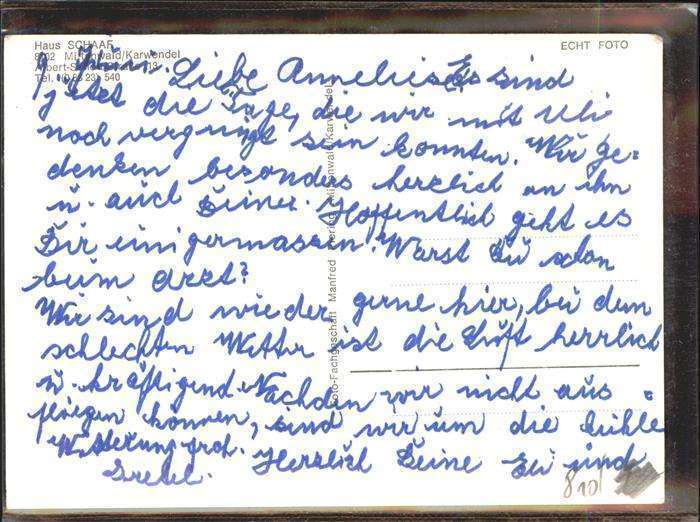 Haus SCHAAF
8102 Mittenwald/Karwendel
Tel. (0 88 23) 540
ECHT FOTO
Juni. Liebe Anneliese Es sind
jetzt die Tage, die wir mit Uli
noch vergnügt sein konnten. Wir ge-
denken besonders herzlich an ihn
u. auch Deiner. Hoffentlich geht es
Dir einigermassen? Warst Du schon
beim Arzt?
Wir sind wieder gerne hier, bei dem
schlechten Wetter ist die Luft herrlich
u. kräftigend. Nachdem wir nicht aus-
fliegen können, sind wir um die kühle
Witterung froh. Herzlich Deine Eli und
Gretel.
Foto-Fachgeschäft Manfred Mittenwald/Karwendel
810